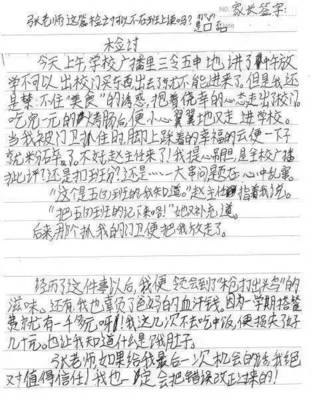 张老师这篇检讨我不在班上读吗?
NO. 家长签字:
检讨
今天上午学校广播里三令五申地讲了中午放
学不可以出校门买东西出去了就不能进来了。但是我还
是禁不住“美食”的诱惑,抱着侥幸的心态走出了校门。
吃完一元的烤肠后便小心翼翼地又走进学校。
当我被门卫抓住时,脚上踩着的幸福的云便一下子
了不好赵主任来了!我提心吊胆,是全校广播
批评?还是扣班分?还是……一大串问题在心中乱窜。
“这个是五(四)班的我来知道。”赵主任指着我说。
“把五(四)班的记下来呀!”她又补充道。
后来那个抓我的门卫便把我放走了。
经历了这件事以后,我便领会到了“枪打出头鸟”的
滋味。还有我也辜负了爸妈的血汗钱,因为一学期搭餐
费就有一千多元呀!我这几次不去吃中饭,便损失了好
几十元。也让我知道什么是饿肚子。
张老师如果给我最后一次机会的话我绝
对值得信任!我也一定会把错误改正过来的!